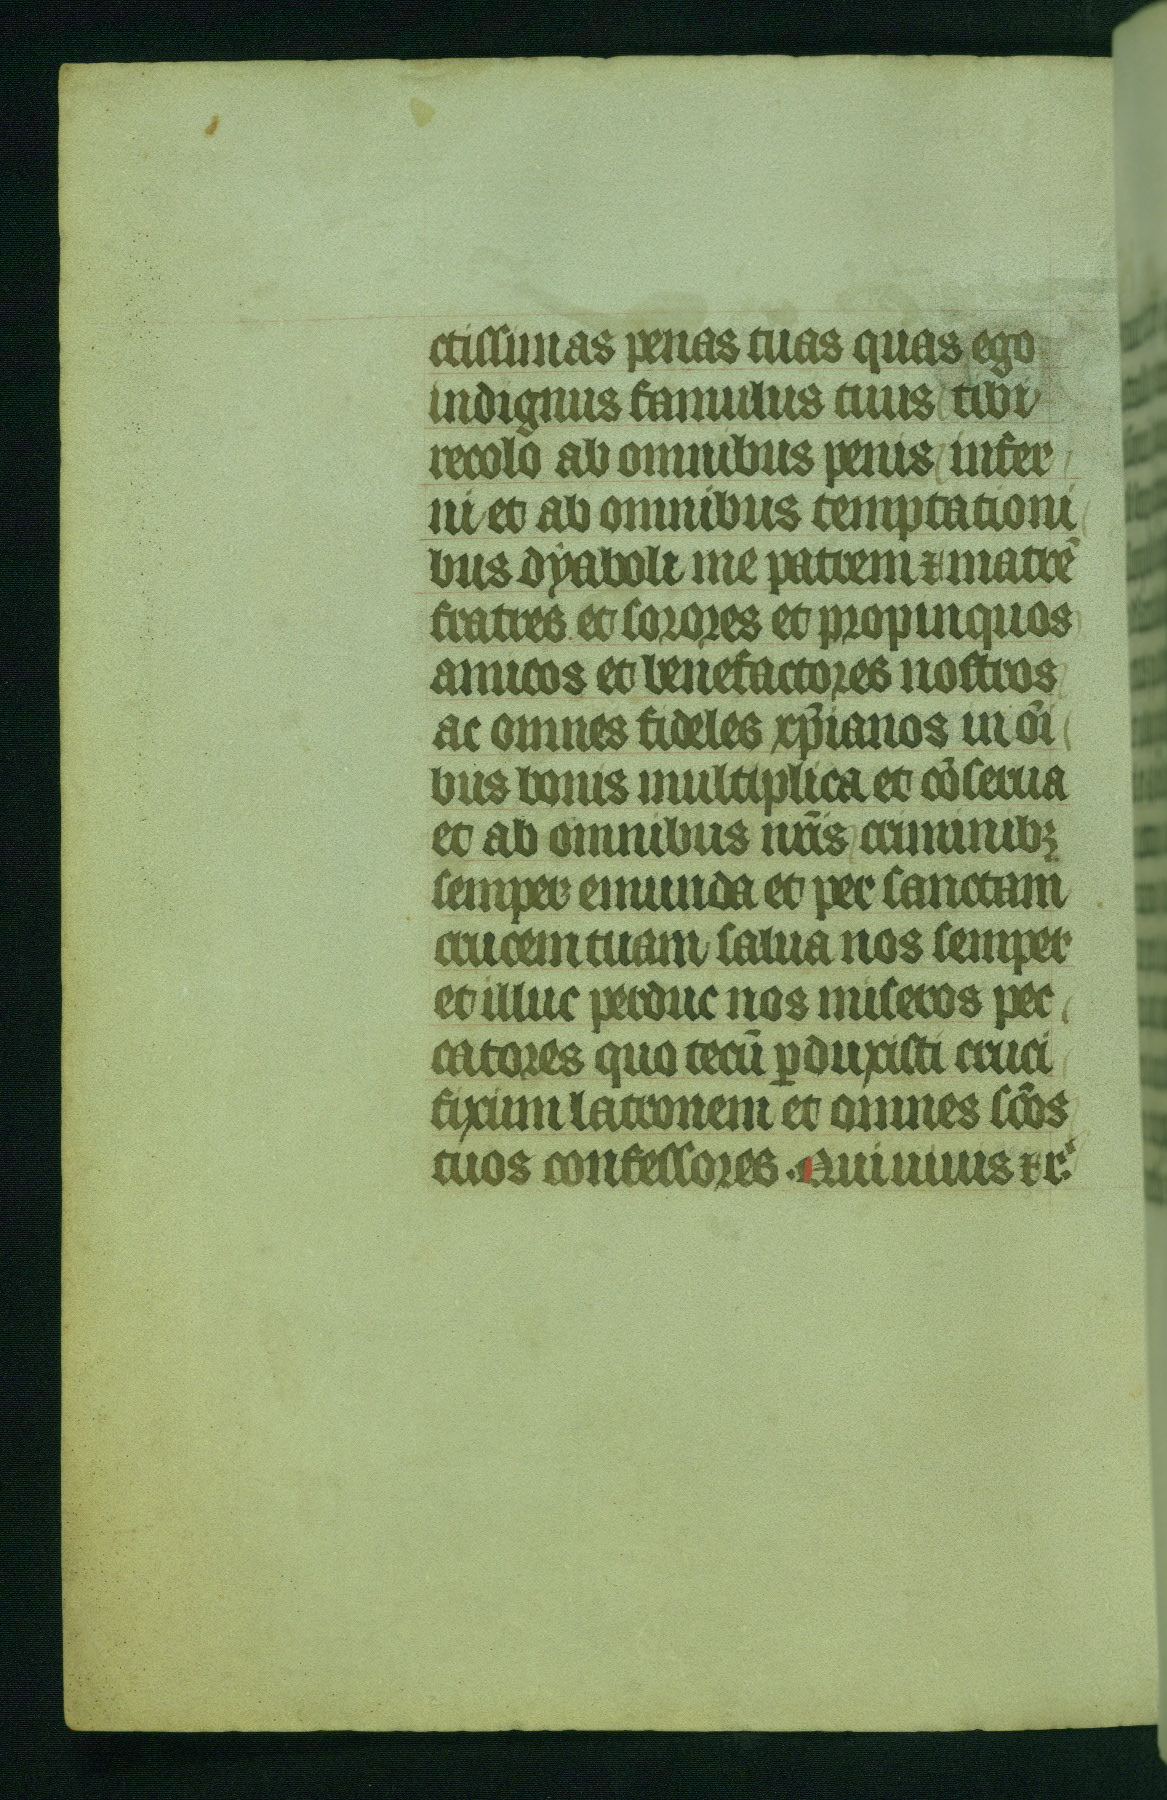 ctissimas penas tuas quas ego
indignus famulus tuus tibi
recolo ab omnibus penis infer
ni et ab omnibus temptationi
bus dẏaboli me patrem ⁊ matrē
fratres et sorores et propinquos
amicos et benefactores nostros
ac omnes fideles xp̄ianos in oī
bus bonis multiplica et cōserua
et ab omnibus nr̄is criminibꝫ
semper emunda et per sanctam
crucem tuam salua nos semper
et illuc perduc nos miseros pec
catores quo tecū ꝑduxisti cruci
fixum latronem et omnes sc̄os
tuos confessores . Qui uiuis ⁊ rᷓ.